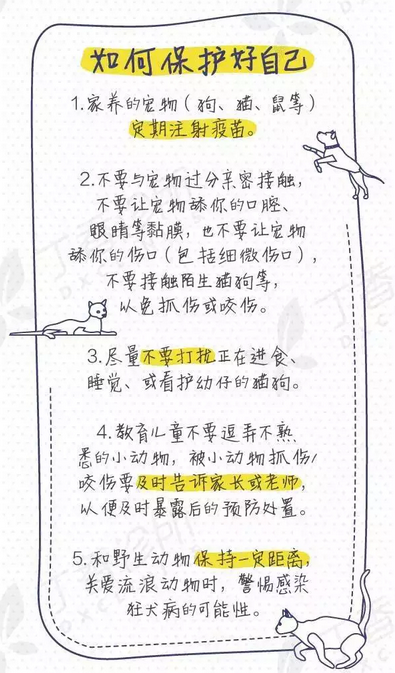 如何保护好自己
1.家养的宠物(狗、猫、鼠等)
定期注射疫苗。
2.不要与宠物过分亲密接触,
不要让宠物舔你的口腔、
眼睛等黏膜,也不要让宠物
舔你的伤口(包括细微伤口),
不要接触陌生猫狗等,
以免抓伤或咬伤。
3.尽量不要打扰正在进食、
睡觉、或看护幼仔的猫狗。
4.教育儿童不要逗弄不熟
悉的小动物,被小动物抓伤/
咬伤要及时告诉家长或老师,
以便及时暴露后的预防处置。
5.和野生动物保持一定距离,
关爱流浪动物时,警惕感染
狂犬病的可能性。